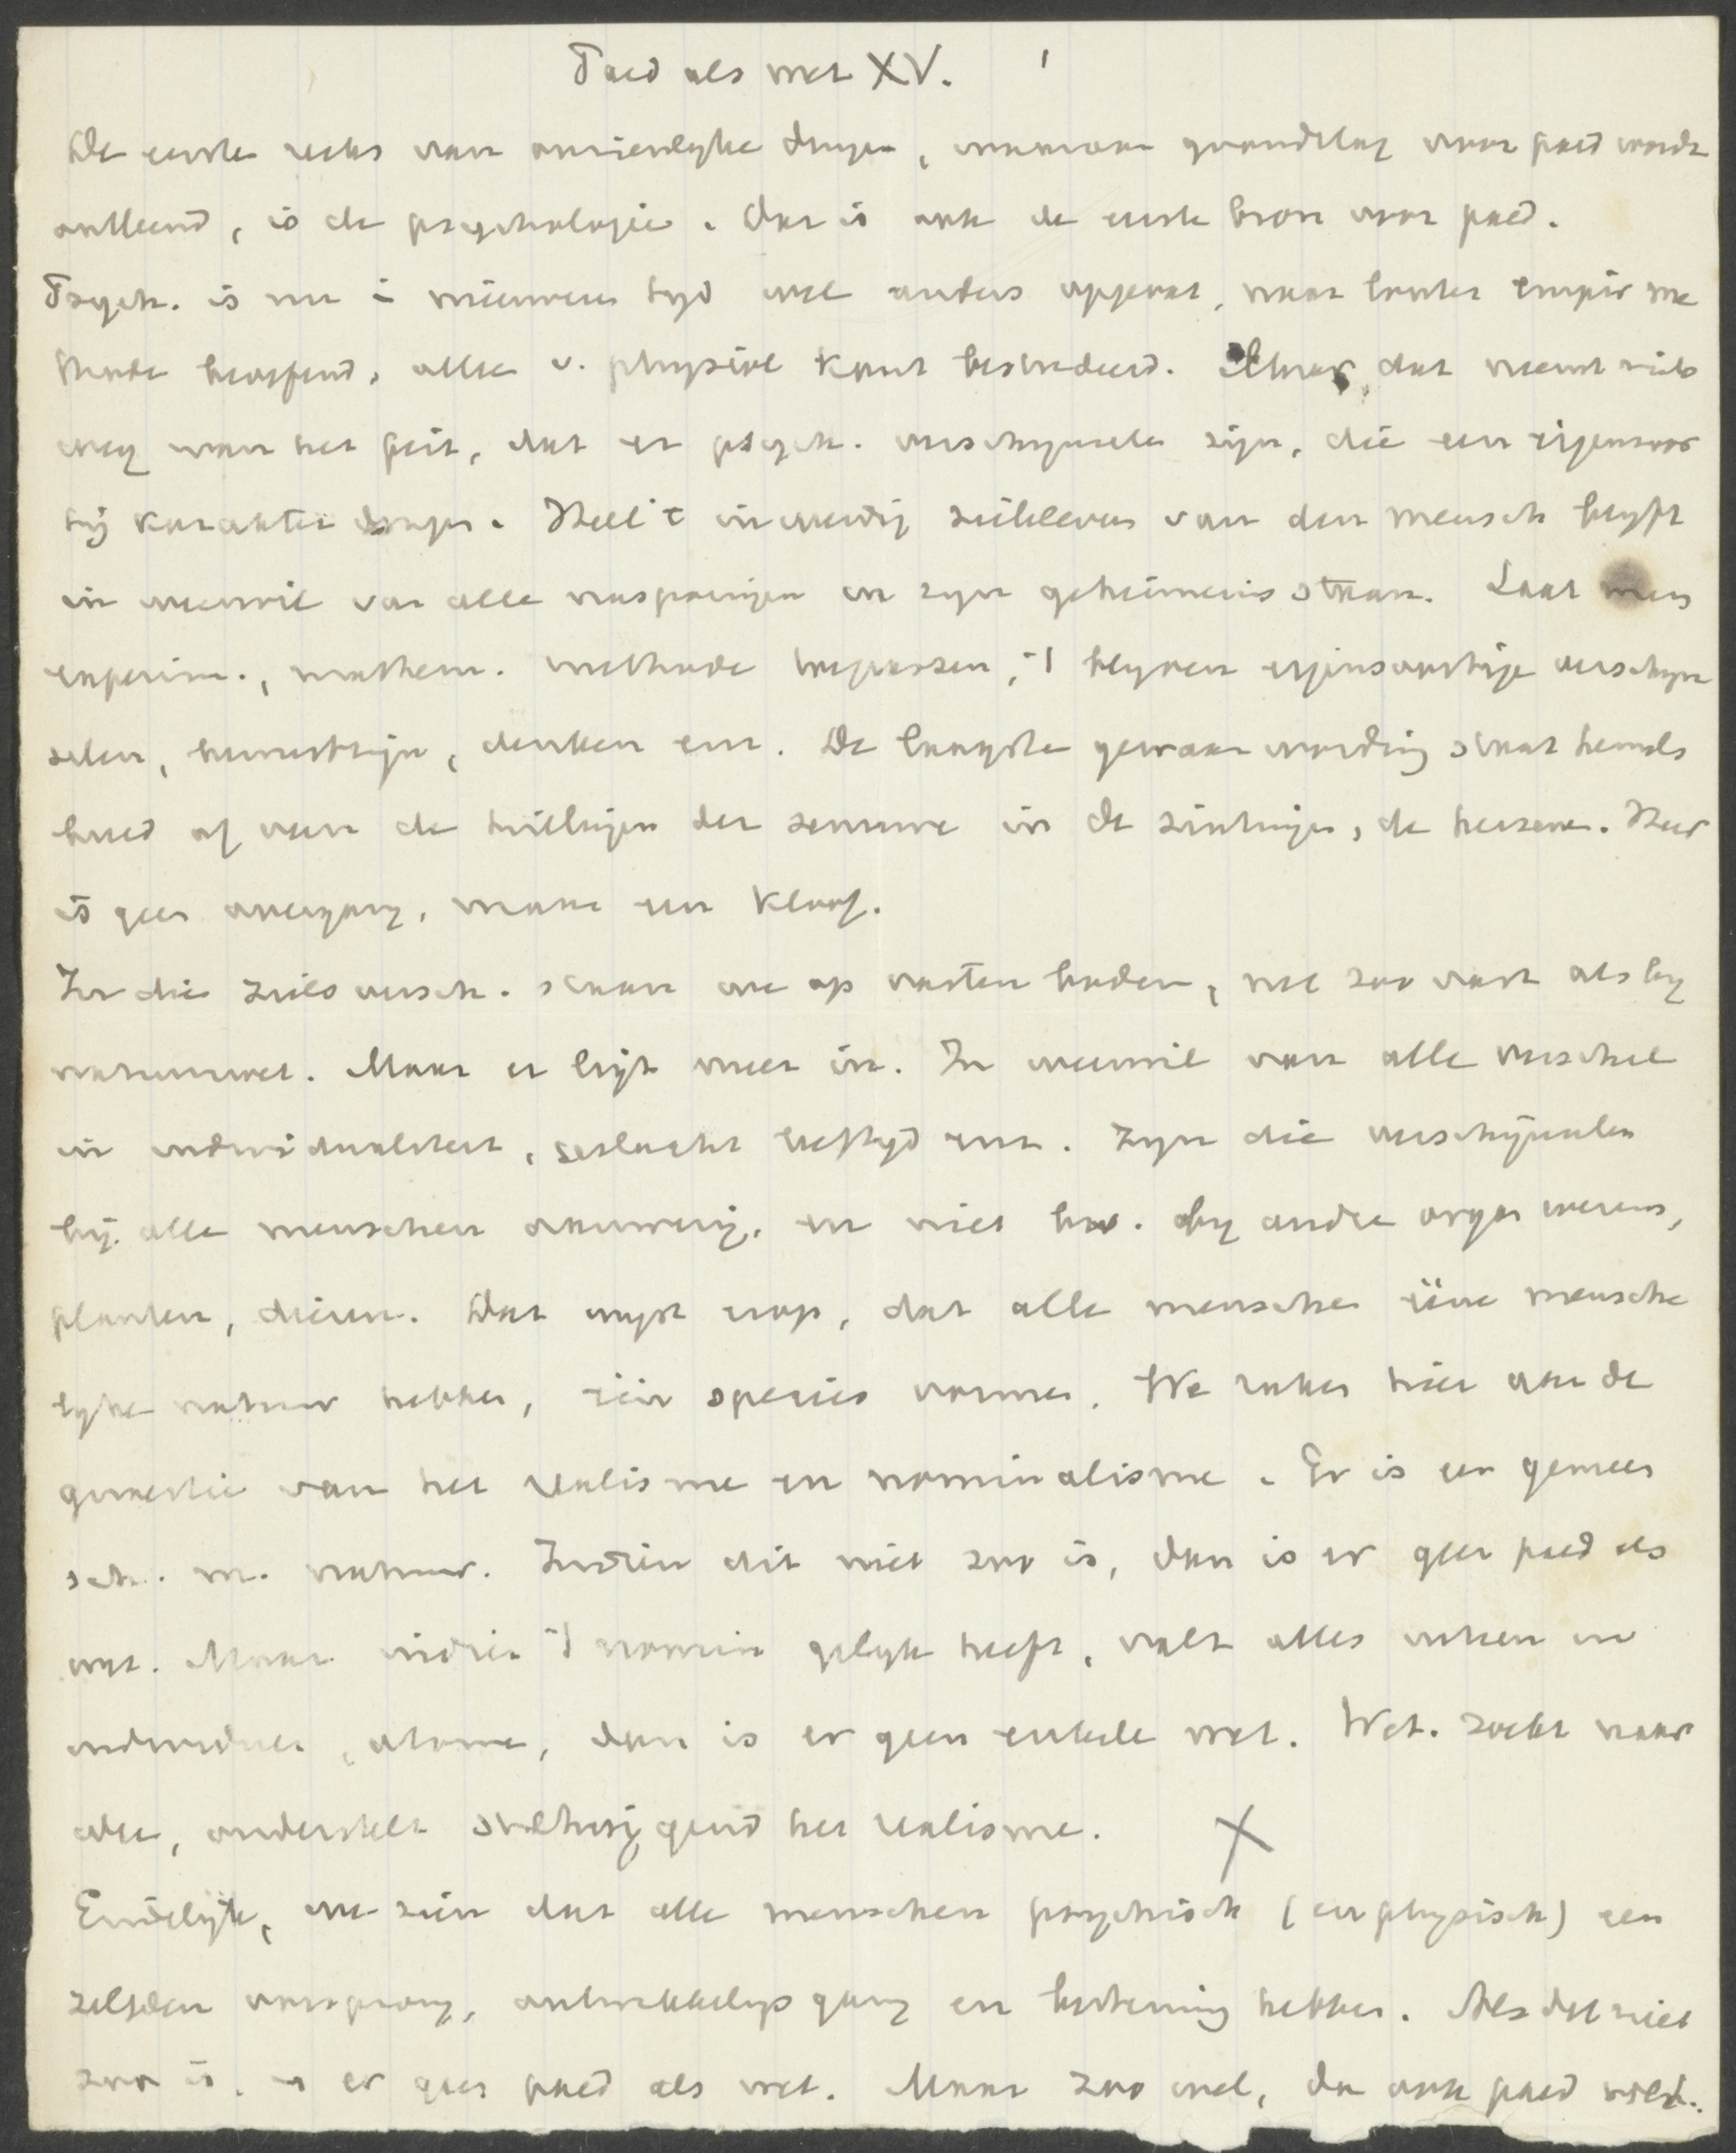 Paed als wet XV. 1
De eerste reeks van onzienlyke dingen, waaraan grondslag voor paed wordt
ontleend, is de psychologie. Dat is ook de eerste bron voor paed.
Psych. is nu i nieuweren tyd wel anders opgevat, naar louter empir me
thode beoefend, alles v. physiol kant bestudeerd. Maar dat neemt niets
weg van het feit, dat er psych. verschynselen zijn, die een eigensoor
tij karakter dragen. Heel 't inwendig zieleleven van den mensch blyft
in weerwil van alle nasporingen in zyn geheimenis staan. Laat men
experim., mathem. methode toepassen, blyven eigensoortige verschyn
selen, bewustzijn, denken enz. De laagste gewaarwording staat hemels
breed af van de trillingen der zenuwe in de zintuigen, de hersens. Hier
is geen overgang, maar een kloof.
In die zielsversch. staan we op vasten bodem, net zoo vast als by
natuurwet. Maar er ligt meer in. In weerwil van alle verschil
in individualiteit, geslacht leeftyd enz. zyn die verschijnselen
bij alle menschen aanwezig, en niet by andre organ wezens,
planten, dieren. Dat wyst erop, dat alle menschen ééne mensche
lyke natuur hebben, één species vormen. We raken hier aan de
quaestie van het realisme en nominalisme. Er is een gemeen
sch. m. natuur. Indien dit niet zoo is, dan is er geen paed als
wet. Maar indien nomin gelyk heeft, valt alles uiteen in
individuen, atome, dan is er geen enkele wet. Wet. zoekt naar
alg, onderstelt stilzwijgend het realisme. X
Eindelijk, we zien dat alle menschen psychisch (en physisch) een
zelfden oorsprong, ontwikkelingsgang en bestemming hebben. Als dat niet
zoo is, is er geen paed als wet. Maar zoo wel, dan ook paed